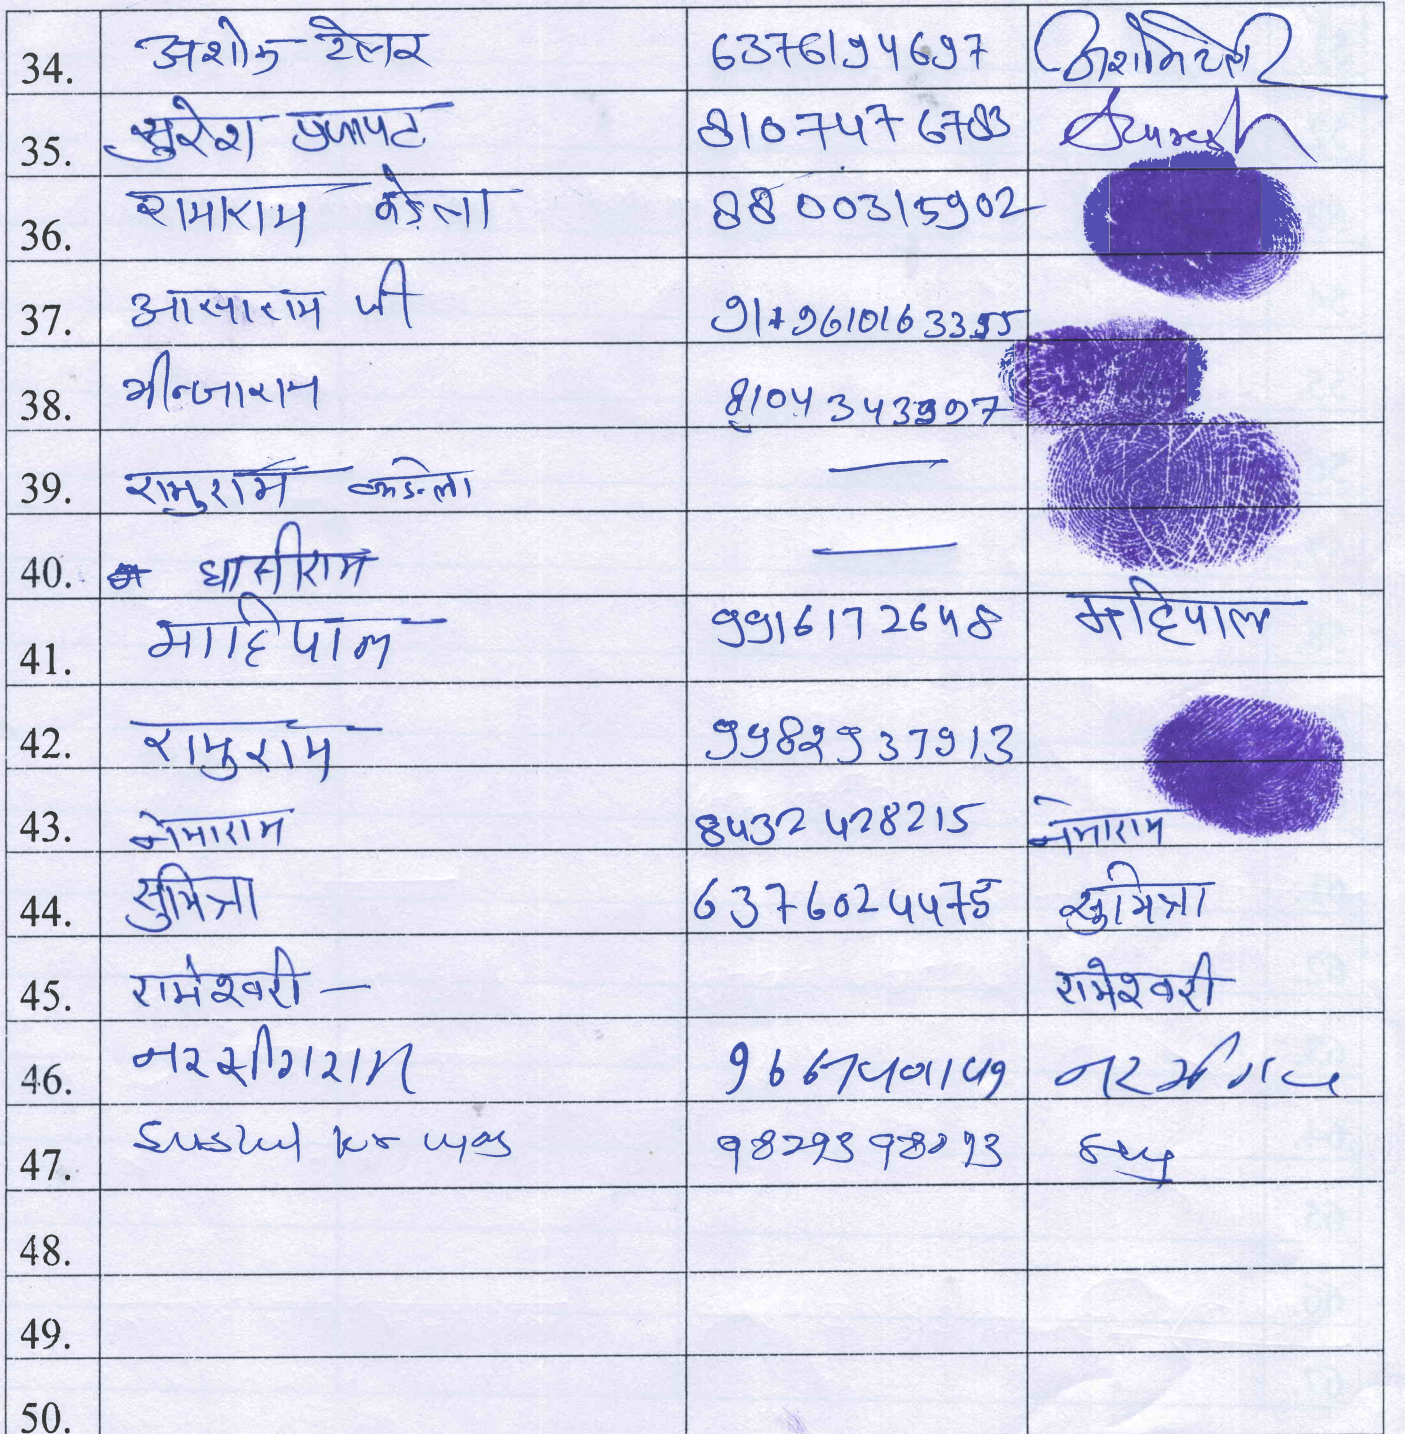 34. अशोक टेलर 6376194697
35. सुरेश प्रजापट 8107476783 Suresh
36. रामाराम कडेला 8800315902
37. आसाराम जी 91+9610163355
38. भीन्जाराम 8104343997
39. रामुराम कडेला —
40. घासीराम —
41. माहिपाल 9916172648 महिपाल
42. रामुराम 9982937913
43. नेमाराम 8432428215 नेमाराम
44. सुमित्रा 6376024475 सुमित्रा
45. रामेश्वरी — रामेश्वरी
46. नरसीगराम
47.
48.
49.
50.